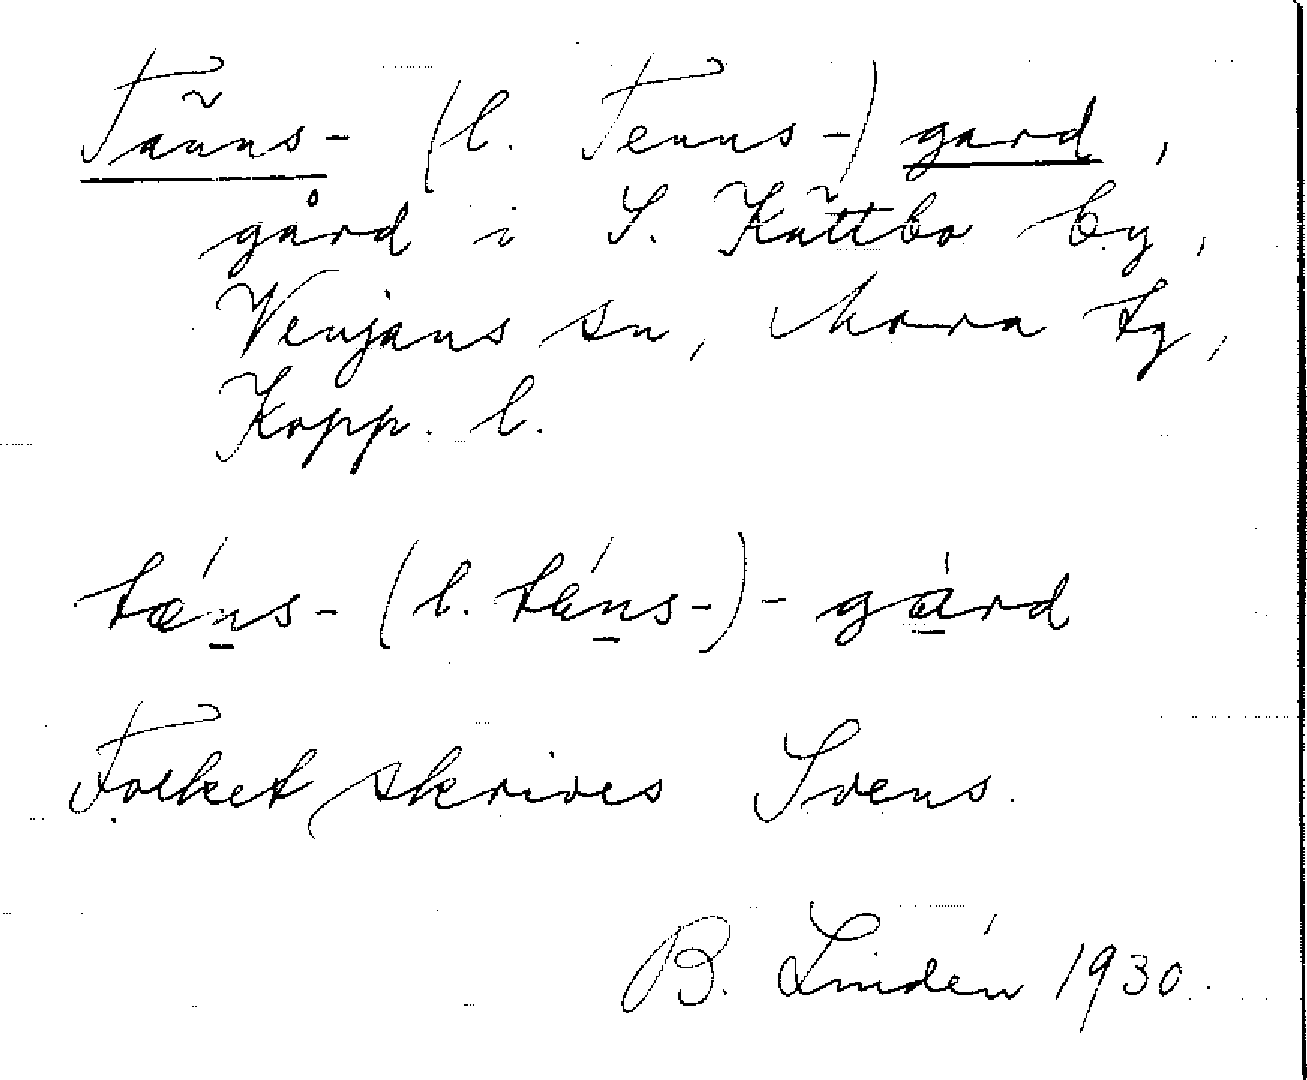 Tänns- (l. Tenns-) gard,
gård i S. Kättbo by,
Venjans sn, Mora tg,
Kopp. l.
tǽns- (l. téns-)-gárd
Folket skrives Svens.
B. Lindén 1930.